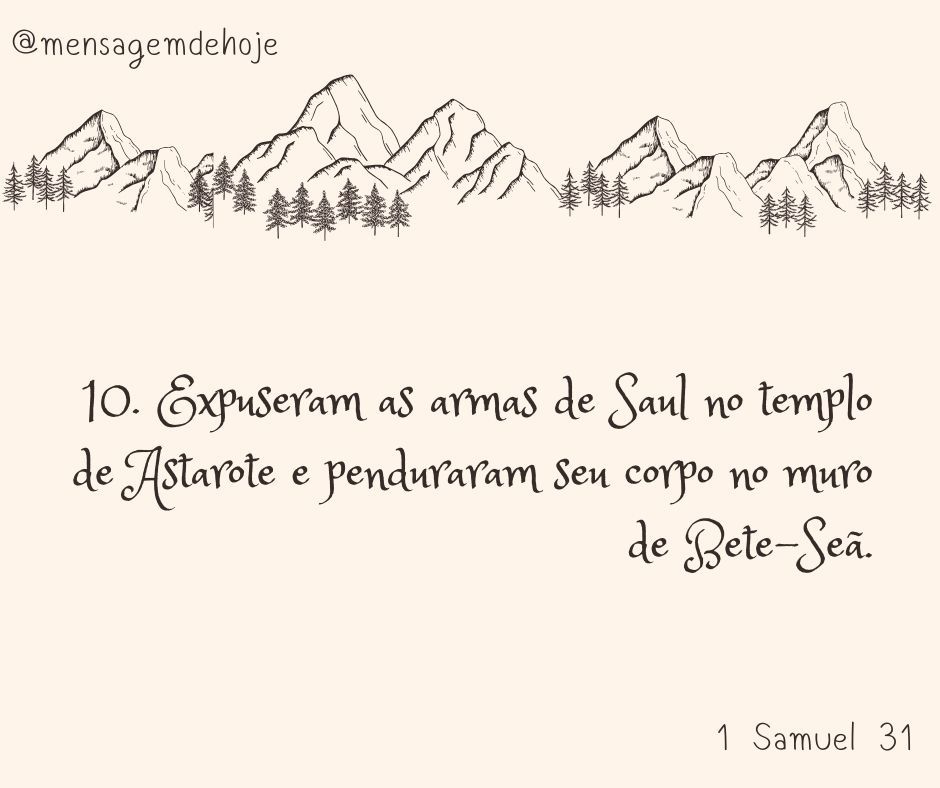 @mensagemdehoje
10. Expuseram as armas de Saul no templo
de Astarote e penduraram seu corpo no muro
de Bete-Seã.
1 Samuel 31